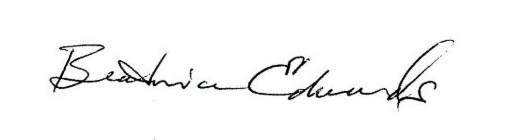 Beatrice Edwards